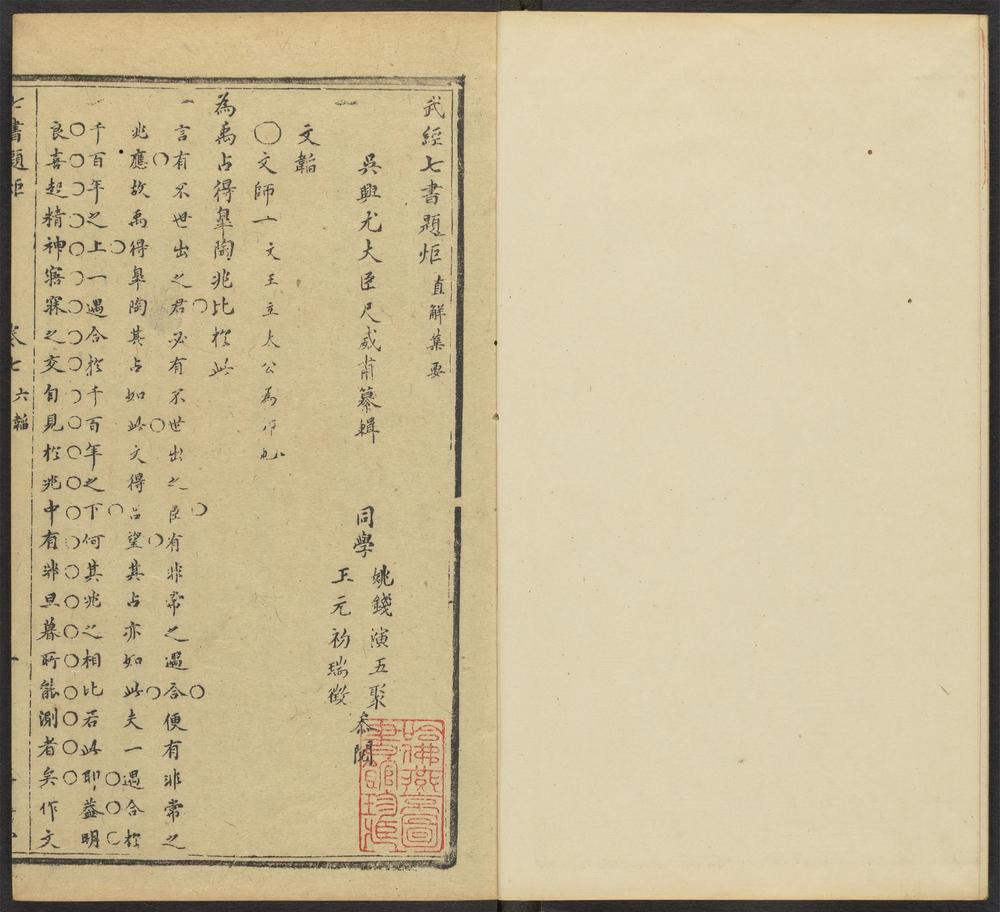 武經七書題炬 直解集要
吳興尤大臣尺威甫纂輯
同學 姚錢演五聚
王元礽瑞徵 叅閱
哈佛燕京圖書館珍藏
文韜
〇文師一 文王立太公為師也
為禹占得皐陶兆比於此
一言有不世出之君必有不世出之臣有非常之遇合便有非常之
兆應故禹得皐陶其占如此文得呂望其占亦如此夫一遇合於
千百年之上一遇合於千百年之下何其兆之相比若此耶益明
良喜起精神寤寐之交自見於兆中有非旦暮所能測者矣作文
七書題炬 卷七 六韜 一